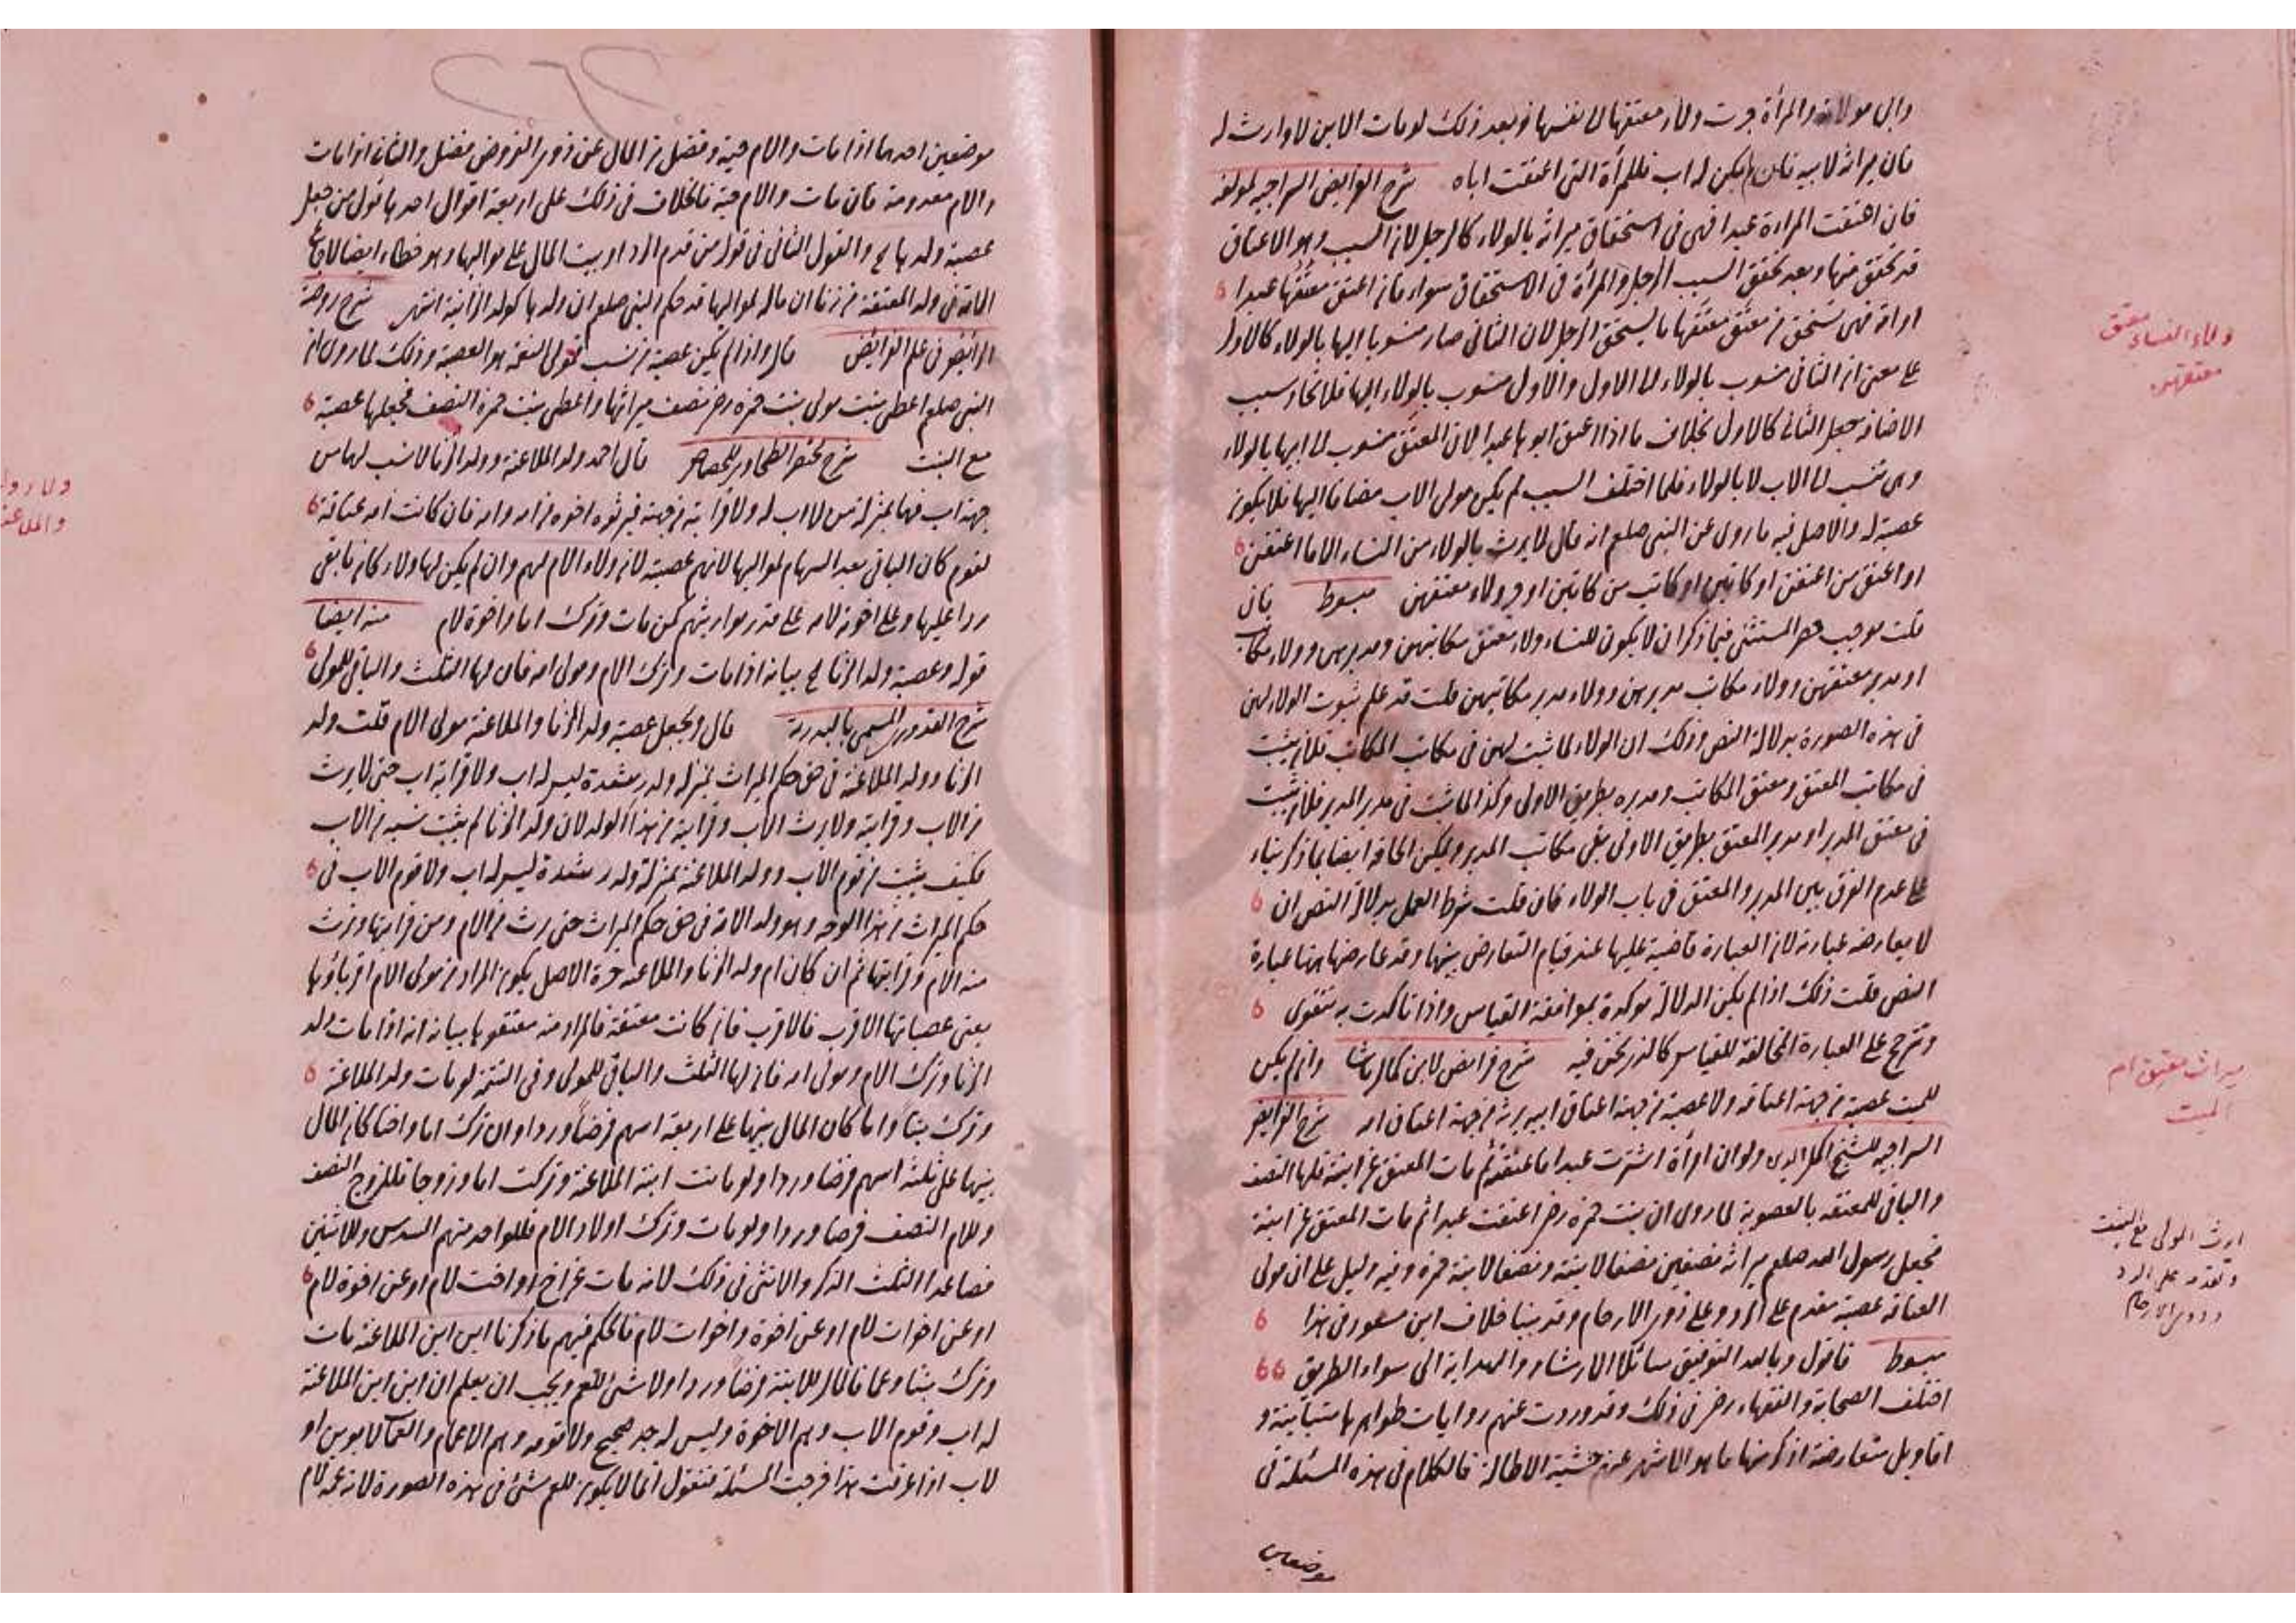 والى مولاته والمرأة جرت ولاء معتقها الى نفسها فبعد ذلك لو مات الابن لا وارث له
فان ميراثه لابيه فان لم يكن له اب فللمرأة التى اعتقت اباه شرح الفرائض السراجيه لمولفه
فان اعتقت المراءة عبدا فهى فى استحقاق ميراثه بالولاء كالرجل لان السبب وهو الاعتاق
قد تحقق منها وبعد تحقق السبب الرجل والمرأة فى الاستحقاق سواء فان اعتق معتقها عبدا
او امة فهى تستحق من معتق معتقها ما يستحق الرجل لان الثانى صار منسوبا اليها بالولاء كالاول
على معنى ان الثانى منسوب بالولاء الى الاول والاول منسوب بالولاء اليها فلاتحاد سبب
الاضافة جعل الثانى كالاول بخلاف ما اذا اعتق ابوها عبدا لان المعتق منسوب الى ابيها بالولاء
وهى تنسب الى الاب لا بالولاء فلما اختلف السبب لم يكن مولى الاب مضافا اليها فلا يكون
عصبة له والاصل فيه ما روى عن النبى صلعم انه قال لا يرث بالولاء من النساء الا ما اعتقن
او اعتق من اعتقن او كاتبن او كاتب من كاتبن او جر ولاء معتقهن مبسوط فان
قلت موجب حصر المستثنى فيما ذكر ان لا يكون للنساء ولاء معتق مكاتبهن ومدبرهن وولاء مكاتب
او مدبر معتقهن وولاء مكاتب مدبرهن وولاء مدبر مكاتبهن قلت قد علم ثبوت الولاء لهن
فى هذه الصورة بدلالة النص وذلك ان الولاء لما ثبت لهن فى مكاتب المكاتب فلان يثبت
فى مكاتب المعتق ومعتق المكاتب ومدبره بطريق الاولى وكذا لما ثبت فى مدبر المدبر فلان يثبت
فى معتق المدبر او مدبر المعتق بطريق الاولى بقى مكاتب المدبر ويمكن الحاقه ايضا بما ذكر بناء
على عدم الفرق بين المدبر والمعتق فى باب الولاء فان قلت شرط العمل بدلالة النص ان
لا يعارضه عبارته لان العبارة قاضية عليها عند قيام التعارض بينها وقد عارضها ههنا عبارة
النص قلت ذلك اذا لم يكن الدلالة موكدة بموافقة القياس واذا تاكدت به تتقوى
وترجح على العبارة المخالفة للقياس كالذى نحن فيه شرح فرائض لابن كمال باشا وان لم يكن
للميت عصبة من جهة اعتاقه ولا عصبة من جهة اعتاق ابيه يرثه من جهة اعتاق امه شرح الفرائض
السراجيه للشيخ اكمل الدين ولو ان امرأة اشترت عبدا فاعتقته ثم مات المعتق عن ابنته فلها النصف
والباقى للمعتقه بالعصوبة لما روى ان بنت حمزة رض اعتقت عبدا ثم مات المعتق عن ابنة
فجعل رسول الله صلعم ميراثه نصفين نصفا لابنته ونصفا لابنة حمزة وفيه دليل على ان مولى
العتاقه عصبة مقدم على الرد وعلى ذوى الارحام وقد بينا خلاف ابن مسعود فى هذا
مبسوط فاقول وبالله التوفيق سائلا الارشاد والهداية الى سواء الطريق
اختلف الصحابة والفقهاء رض فى ذلك وقد وردت عنهم روايات ظواهرها متباينة و
اقاويل متعارضة اذكر منها ما هو الاشهر عنهم خشية الاطالة فالكلام فى هذه المسئلة فى
موضعين
ولاء النساء معتق
معتقهن
ميراث معتق ام
الميت
ارث المولى مع البنت
وتقدمه على الرد
وذوى الارحام
موضعين احدهما اذا مات والام حية وفضل من المال عن ذوى الفروض فضل والثانى اذا مات
والام معدومة فان مات والام حية فالخلاف فى ذلك على اربعة اقوال احدها قول من جعل
عصبة ولدها الخ والقول الثانى فى قول من قدم الرد او بيت المال على مواليها وهو خطاء ايضا
فى ولد المعتقة من زنا ان ماله لمواليها قد حكم النبى صلعم ان ولدها كولد الزانية انتهى شرح روضة
الرائض فى علم الفرائض قال واذا لم يكن عصبة من نسب فمولى النعمة هو العصبة وذلك لما روى ان
النبى صلعم اعطى بنت مولى بنت حمزة رض نصف ميراثها واعطى بنت حمزة النصف فجعلها عصبة
مع البنت شرح مختصر الطحاوى للجصاص قال احمد ولد الملاعنة وولد الزنا لا نسب لهما من
جهة اب فهما بمنزلة من لا اب له ولا قرابة من جهته فيرثه اخوه من امه وامه فان كانت امه عتاقة
لقوم كان الباقى بعد السهام لمواليها لانهم عصبته لان ولاء الام لهم وان لم يكن لها ولاء كان ما بقى
ردا عليها وعلى اخوته لامه على قدر مواريثهم كمن مات وترك اما واخوة لام منه ايضا
قوله وعصبة ولد الزنا الخ بيانه اذا مات وترك الام ومولى امه فان لها الثلث والباقى للمولى
شرح القدورى المسمى بالبدرية قال ويجعل عصبة ولد الزنا والملاعنة مولى الام قلت ولد
الزنا وولد الملاعنة فى حق حكم الميراث بمنزلة ولد رشدة ليس له اب ولا قرابة اب حتى لا يرث
من الاب وقرابته ولا يرث الاب وقرابته من هذا الولد لان ولد الزنا لم يثبت نسبه من الاب
فكيف يثبت من قوم الاب وولد الملاعنة بمنزلة ولد رشدة ليس له اب ولا قوم الاب فى
حكم الميراث من هذا الوجه وهو ولد الام فى حق حكم الميراث حتى يرث من الام ومن قرابتها وترث
منه الام وقرابتها ثم ان كان ام ولد الزنا والملاعنة حرة الاصل يكون المراد من مولى الام اقرباؤها
يعنى عصباتها الاقرب فالاقرب فان كانت معتقة فالمراد منه معتقوها بيانه انه اذا مات ولد
الزنا وترك الام ومولى امه فان لها الثلث والباقى للمولى وفى التتمة لو مات ولد الملاعنة
وترك بنتا واما كان المال بينهما على اربعة اسهم فرضا وردا وان ترك اما واختا كان المال
بينهما على ثلثة اسهم فرضا وردا ولو ماتت ابنة الملاعنة وتركت اما وزوجا فللزوج النصف
وللام النصف فرضا وردا ولو مات وترك اولاد الام فللواحد منهم السدس وللاثنين
فصاعدا الثلث الذكر والانثى فى ذلك لانه مات عن اخ او اخت لام او عن اخوة لام
او عن اخوات لام او عن اخوة واخوات لام فالحكم فيهم ما ذكرنا ابن ابن الملاعنة مات
وترك بنتا وعما فالمال للابنة فرضا وردا ولا شئ للعم ويجب ان يعلم ان ابن ابن الملاعنة
له اب وقوم الاب وهم الاخوة وليس له جد صحيح ولا قومه وهم الاعمام والعمات لابوين او
لاب اذا عرفت هذا فرجت المسئلة فنقول انما لا يكون للعم شئ فى هذه الصورة لانه عم لام
ولاء ولد
والملاعنة